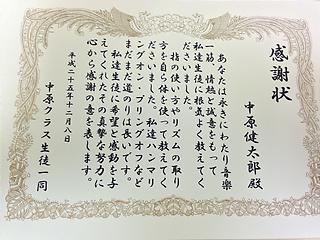 感謝状
中原健太郎殿
あなたは永きにわたり音楽
一筋に情熱と誠意をもって
私達生徒に根気よく教えてく
ださいました。
指の使い方やリズムの取り
方を自ら体を使って教えてく
ださいました。私達ハンマリ
ングオン・プリングオフなど
まだまだ道のりは長いです。
私達生徒に希望と感動を与
えてくれたその真摯な努力に
心から感謝の意を表します。
平成二十五年十二月八日
中原クラス生徒一同